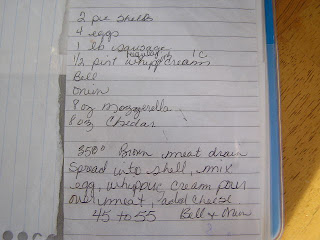 2 pie shells
4 eggs
1 lb sausage
1/2 pint whipp cream 1 C
Bell
Onion
8 oz Mozzerella
8 oz Chedar
350° Brown meat drain
Spread into shell, mix
egg, whipping cream pour
over meat, add cheese
45 to 55 Bell & Onion